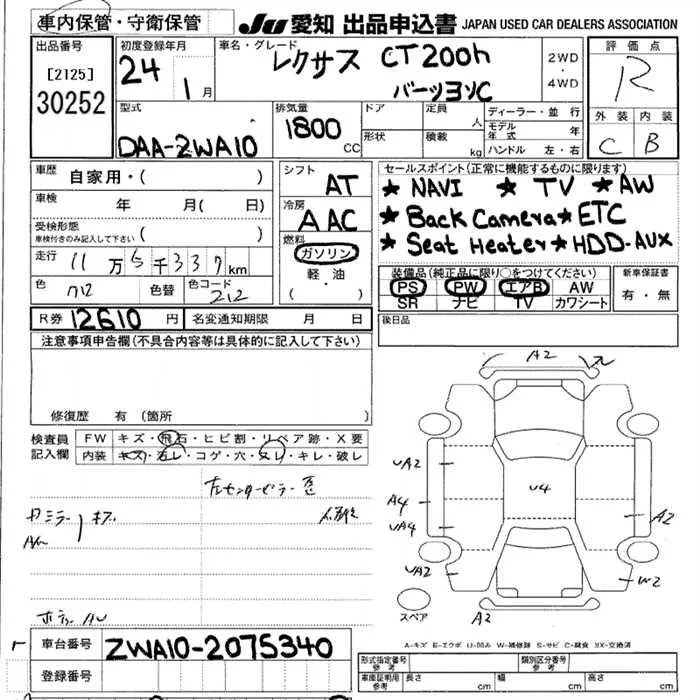 車内保管・守衛保管
JU 愛知 出品申込書 JAPAN USED CAR DEALERS ASSOCIATION
出品番号
[2125]
30252
初度登録年月
24 1月
車名・グレード
レクサス CT200h
バージョンC
2WD
・
4WD
評価点
R
外装 内装
C B
型式
DAA-ZWA10
排気量
1800 CC
ドア
形状
定員 人
積載 kg
ディーラー・並行
モデル年式 年
ハンドル 左・右
車歴 自家用・( )
車検 年 月( 日)
受検形態
車検付きのみ記入して下さい ( )
走行 11万5千337km
色 212 色替 色コード 212
シフト
AT
冷房
AAC
燃料
ガソリン
・軽・油
( )
セールスポイント(正常に機能するものに限ります)
★ NAVI ★ TV ★ AW
★ Back Camera ★ ETC
★ Seat Heater ★ HDD-AUX
装備品(純正品に限り○をつけてください)
PS PW エアB AW
SR ナビ TV カワシート
新車保証書
有・無
R券 12610円 名変通知期限 月 日
後日品
注意事項申告欄(不具合内容等は具体的に記入して下さい)
修復歴 有(箇所
検査員記入欄
FW キズ・飛石・ヒビ割・リペア跡・X要
内装 キズ・汚レ・コゲ・穴・スレ・キレ・破レ
左センターピラー
ミラー
A2
UA2
A4
UA4
UA2
U4
A2
W2
A2
スペア
A-キズ E-エクボ U-凹み W-補修跡 S-サビ C-腐食 XX-交換済
車台番号 ZWA10-2075340
登録番号
形式指定番号
参考
類別区分番号
参考
車庫証明用
参考
長さ cm 幅 cm 高さ cm